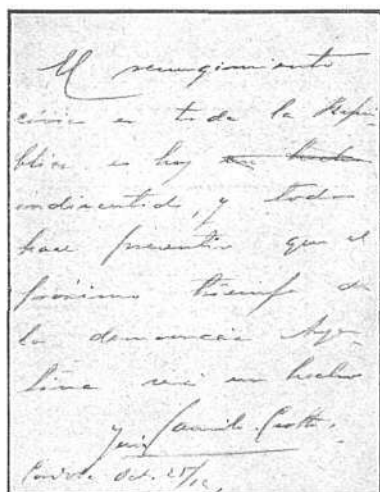 El resurgimiento
cívico en toda la Repú-
blica es hoy un hecho
indiscutido, y todo
hace presentir que el
próximo triunfo de
la democracia Argen-
tina será un hecho
José Camilo Crotto.
Octe. 25/12,